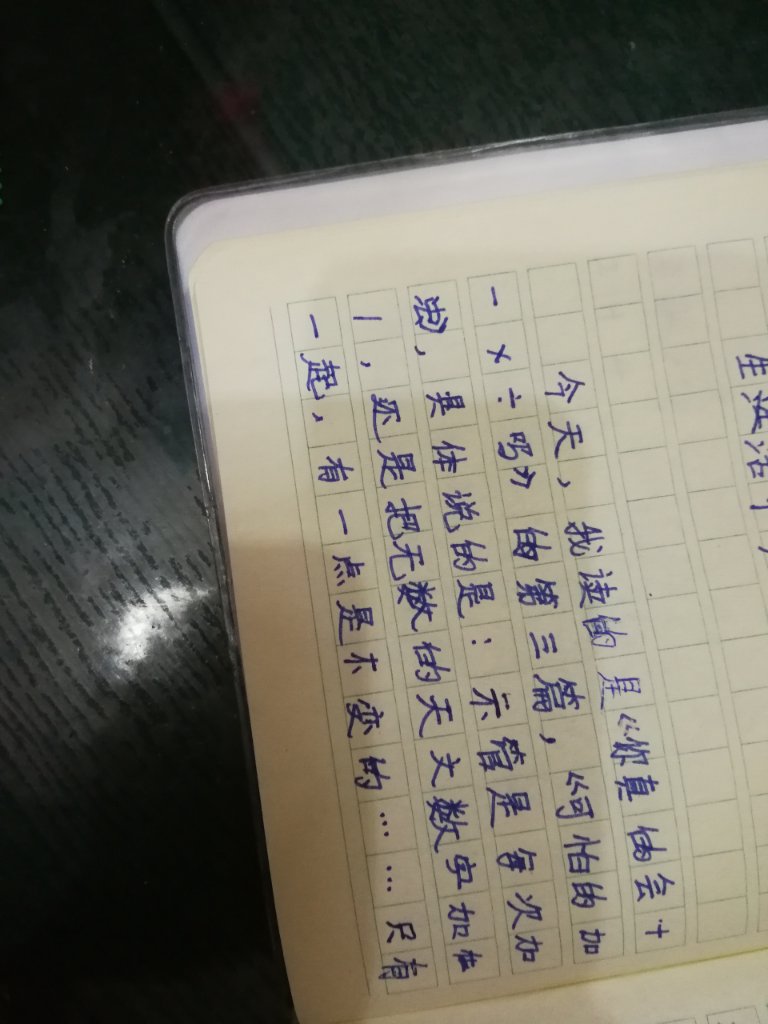 今天，我读的是《你真的会+
一×÷吗》的第三篇，《可怕的加
法》，具体说的是：不管是每次加
1，还是把无数的天文数字加在
一起，有一点是不变的……只有